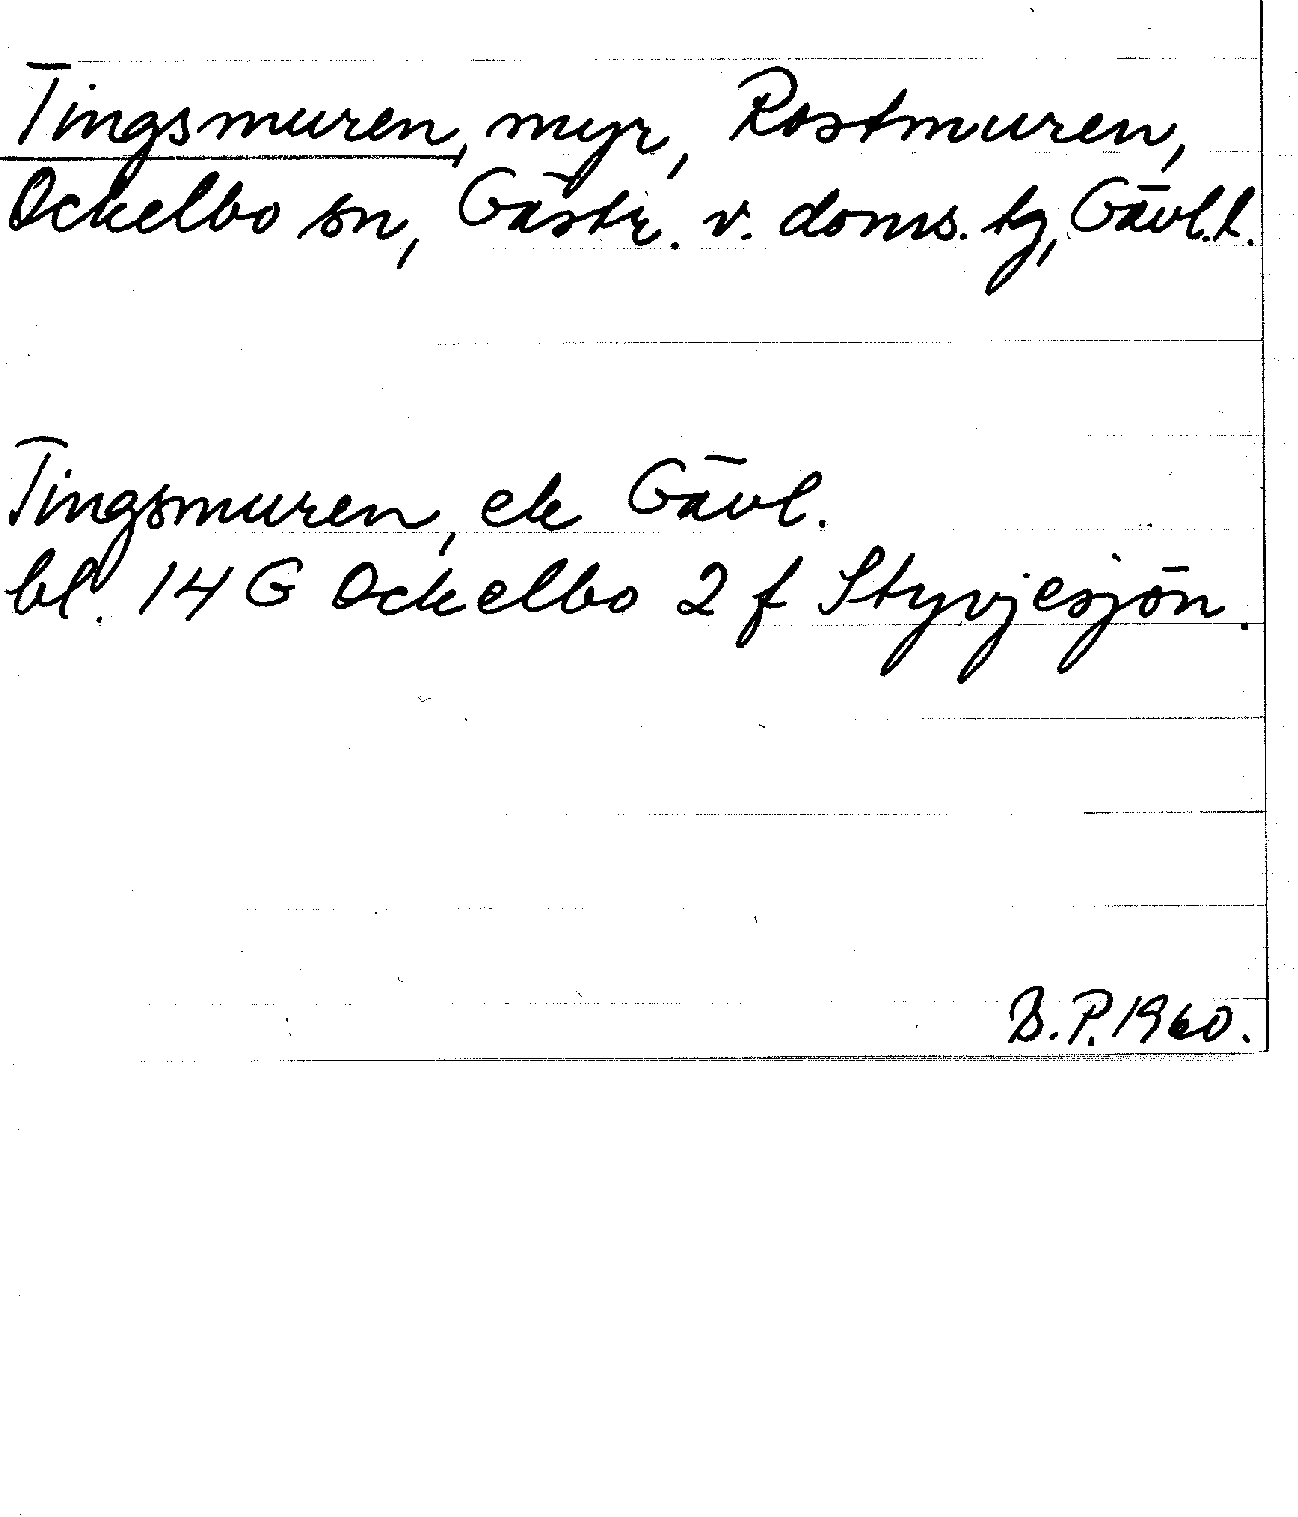 Tingsmuren, myr, Rostmuren,
Ockelbo sn, Gästr. v. doms. tg, Gävl.l.
Tingsmuren, ek Gävl.
bl. 14 G Ockelbo 2 f Styvjesjön.
B.P. 1960.